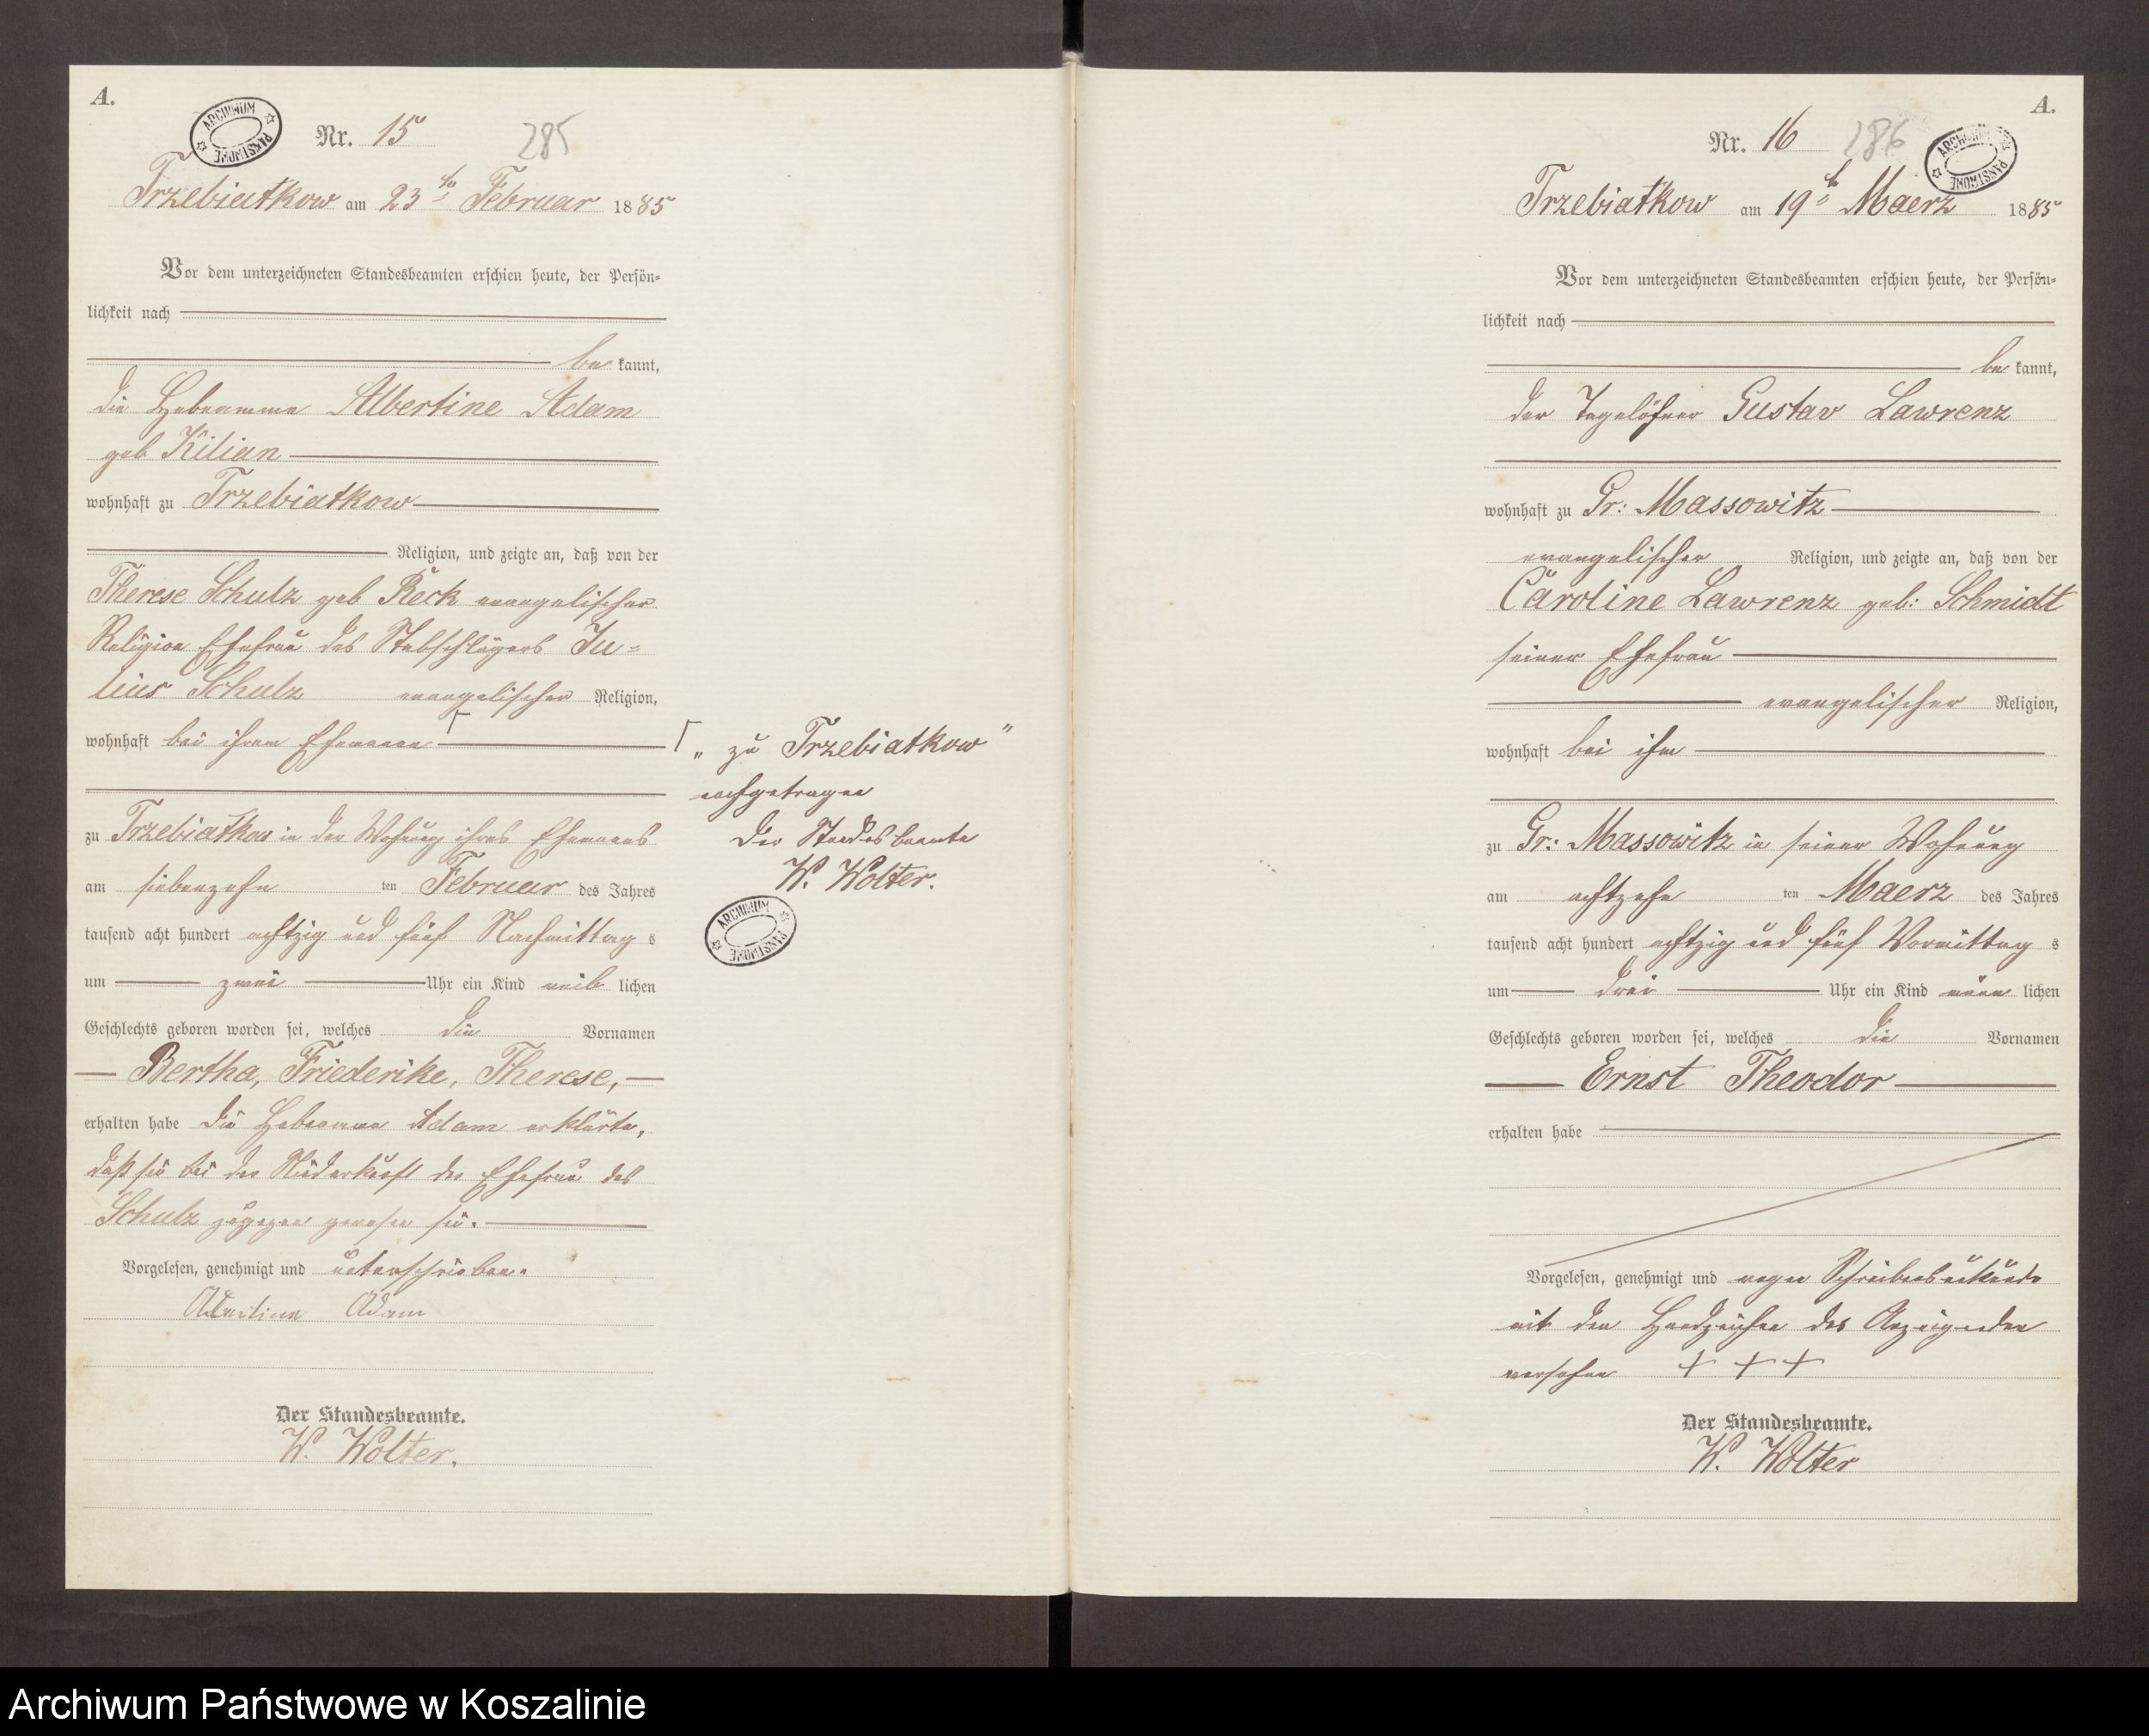 A.
ARCHIWUM PAŃSTWOWE
Nr. 15
285
Trzebiatkow am 23ten Februar 1885
Vor dem unterzeichneten Standesbeamten erschien heute, der Persön-
lichkeit nach
bekannt,
die Hebeamme Albertine Adam
geb Kilian
wohnhaft zu Trzebiatkow
Religion, und zeigte an, daß von der
Therese Schulz geb Reck evangelischer
Religion Ehefrau des Stabschlägers Ju-
lius Schulz evangelischer Religion,
wohnhaft bei ihrem Ehemann
zu Trzebiatkow in der Wohnung ihres Ehemanns
am siebenzehn ten Februar des Jahres
tausend acht hundert achtzig und fünf Nachmittag s
um zwei Uhr ein Kind weiblichen
Geschlechts geboren worden sei, welches die Vornamen
Bertha, Friederike, Therese,
erhalten habe die Hebeamme Adam erklärte,
daß sie bei der Niederkunft der Ehefrau des
Schulz zugegen gewesen sei.
Vorgelesen, genehmigt und unterschrieben.
Albertine Adam
Der Standesbeamte.
W. Wolter.
„zu Trzebiatkow"
nachgetragen
Der Standesbeamte
W. Wolter.
ARCHIWUM PAŃSTWOWE
A.
Nr. 16
286
ARCHIWUM PAŃSTWOWE
Trzebiatkow am 19t Maerz 1885
Vor dem unterzeichneten Standesbeamten erschien heute, der Persön-
lichkeit nach
bekannt,
der Tagelöhner Gustav Lawrenz
wohnhaft zu Gr: Massowitz
evangelischer Religion, und zeigte an, daß von der
Caroline Lawrenz geb: Schmidt
seiner Ehefrau
evangelischer Religion,
wohnhaft bei ihm
zu Gr: Massowitz in seiner Wohnung
am achtzehn ten Maerz des Jahres
tausend acht hundert achtzig und fünf Vormittag s
um drei Uhr ein Kind männlichen
Geschlechts geboren worden sei, welches die Vornamen
Ernst Theodor
erhalten habe
Vorgelesen, genehmigt und wegen Schreibensunkunde
mit den Handzeichen des Anzeigenden
versehen + + +
Der Standesbeamte.
W. Wolter
Archiwum Państwowe w Koszalinie